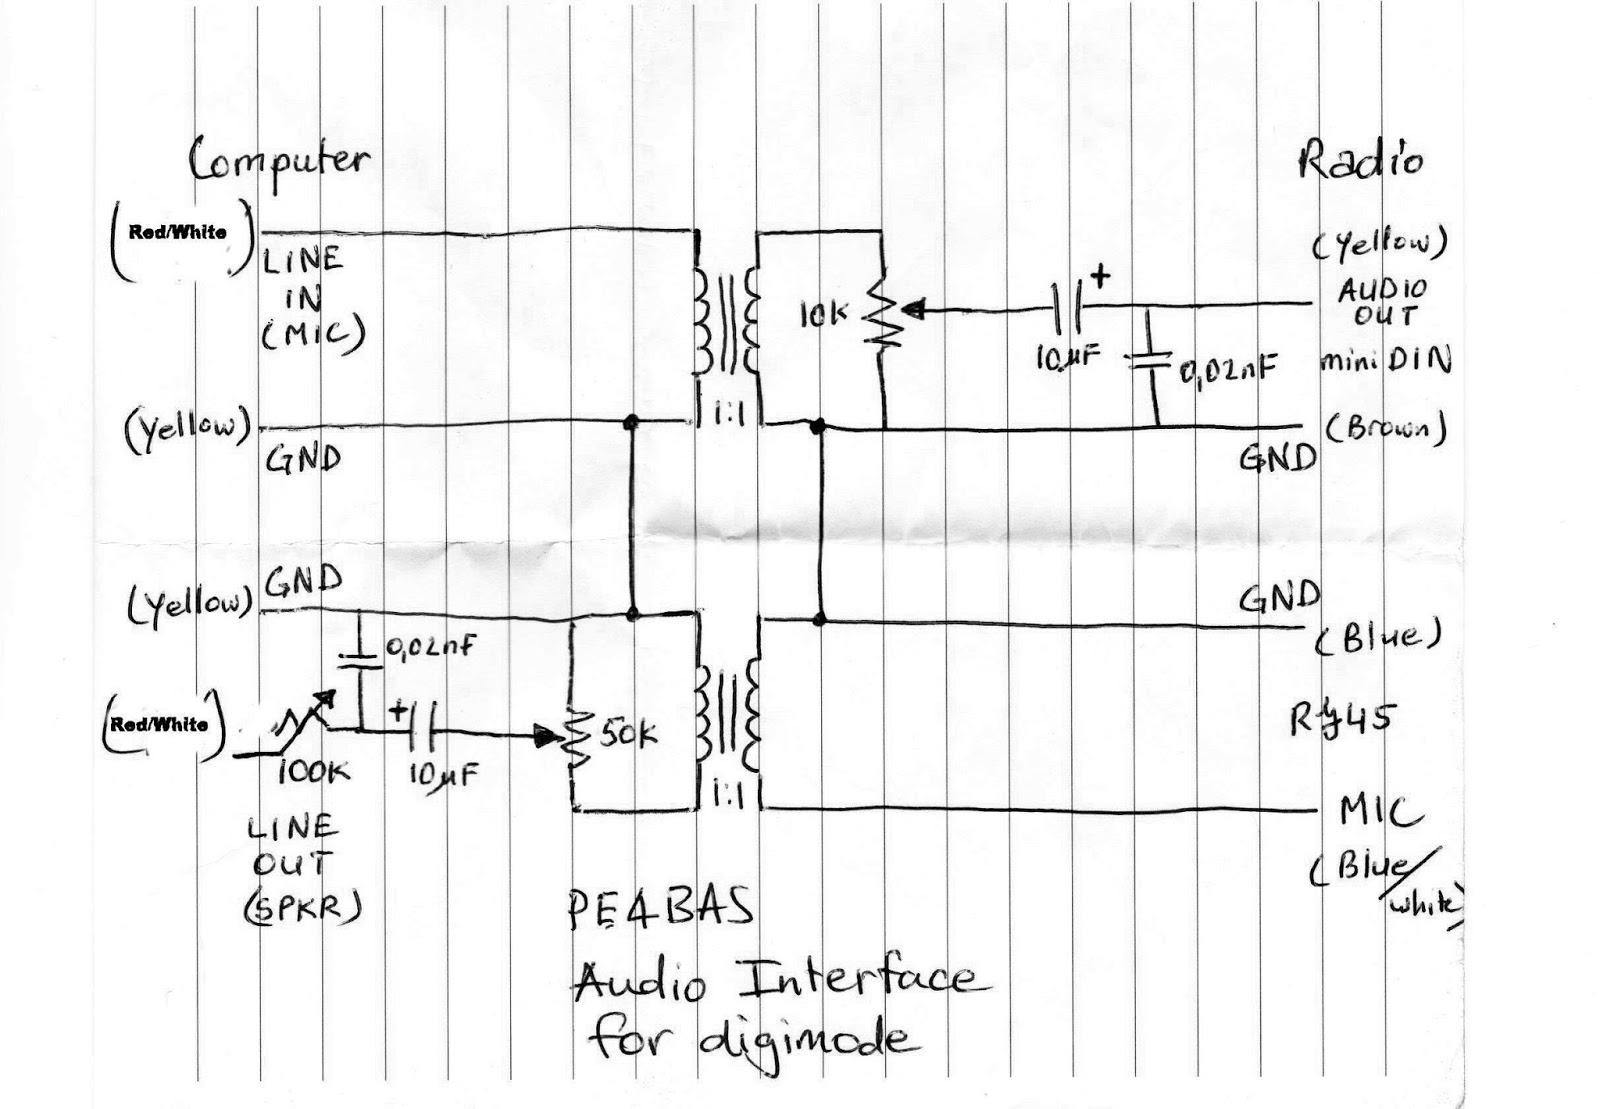 Computer
Radio
(Red/White)
LINE
IN
(MIC)
(Yellow)
AUDIO
OUT
miniDIN
10K
+
10µF
0,02nF
1:1
(Yellow)
GND
(Brown)
GND
(Yellow)
GND
GND
(Blue)
0,02nF
(Red/White)
100K
+
10µF
50K
1:1
Rj45
LINE
OUT
(SPKR)
MIC
(Blue/
white)
PE4BAS
Audio Interface
for digimode